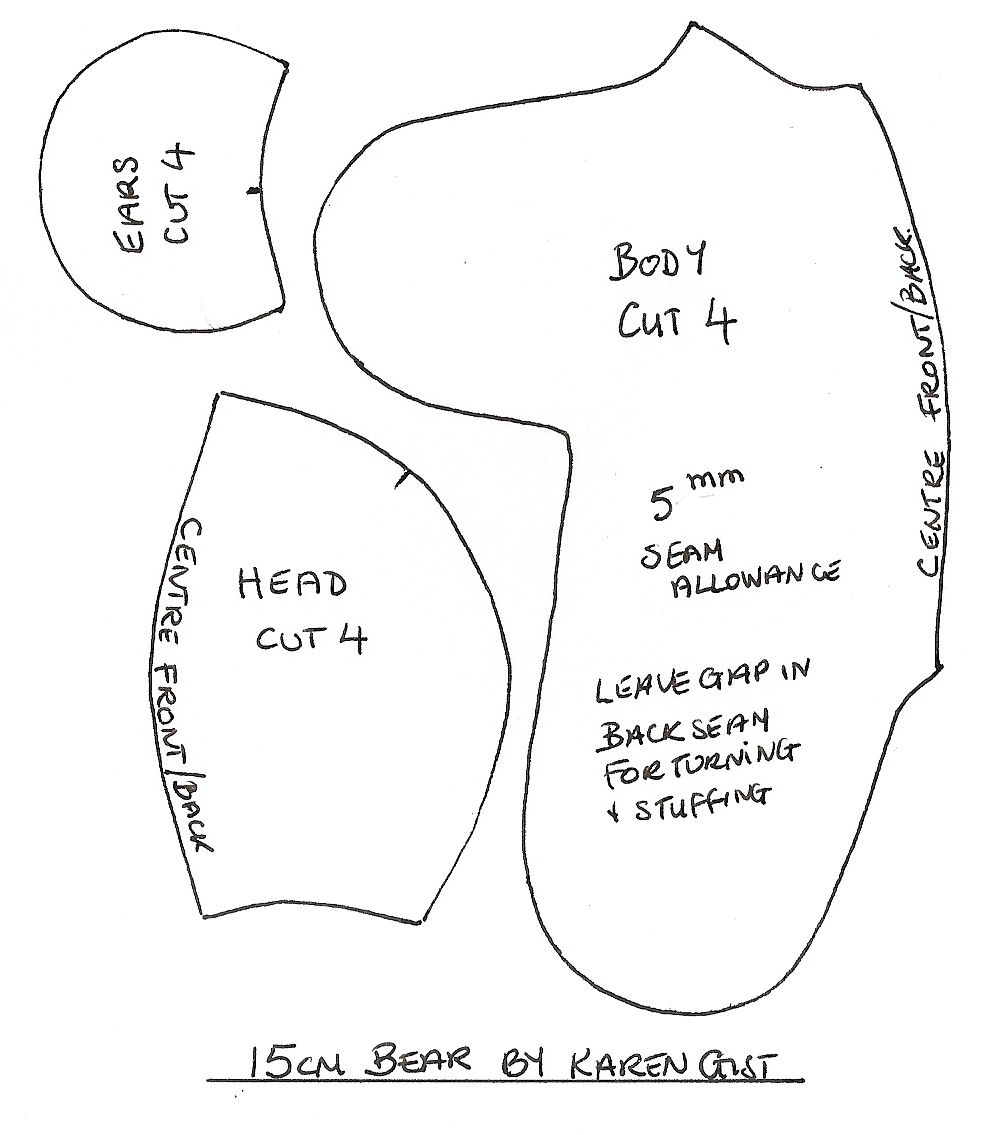 EARS
CUT 4
BODY
CUT 4
CENTRE FRONT/BACK.
5 mm
SEAM
ALLOWANCE
HEAD
CUT 4
CENTRE FRONT/BACK
LEAVE GAP IN
BACK SEAM
FOR TURNING
& STUFFING
15CM BEAR BY KAREN GIST